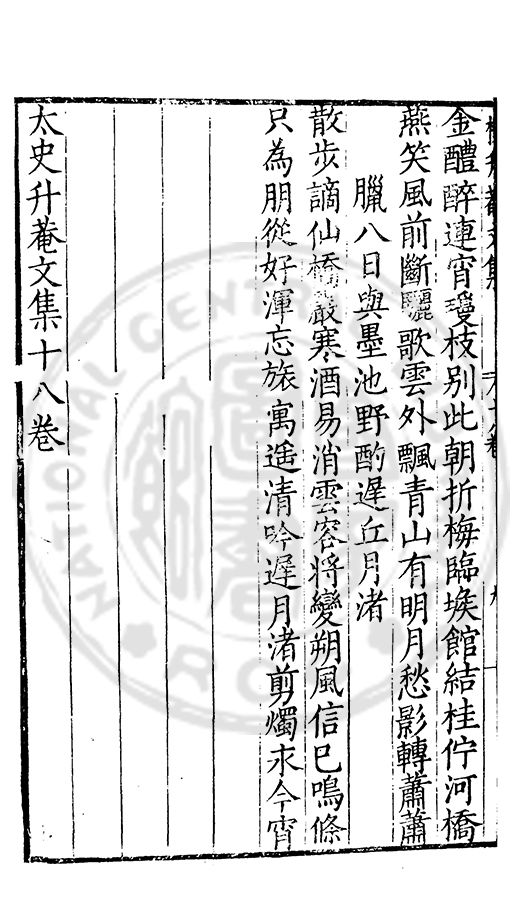 金醴醉連宵瓊枝別此朝折梅臨堠館結桂佇河橋
燕笑風前斷驪歌雲外飄青山有明月愁影轉蕭蕭
臘八日與墨池野酌遲丘月渚
散步謫仙橋嚴寒酒易消雲容將變朔風信已鳴條
只為朋從好渾忘旅寓遥清吟遲月渚剪燭永今宵
太史升菴文集十八卷